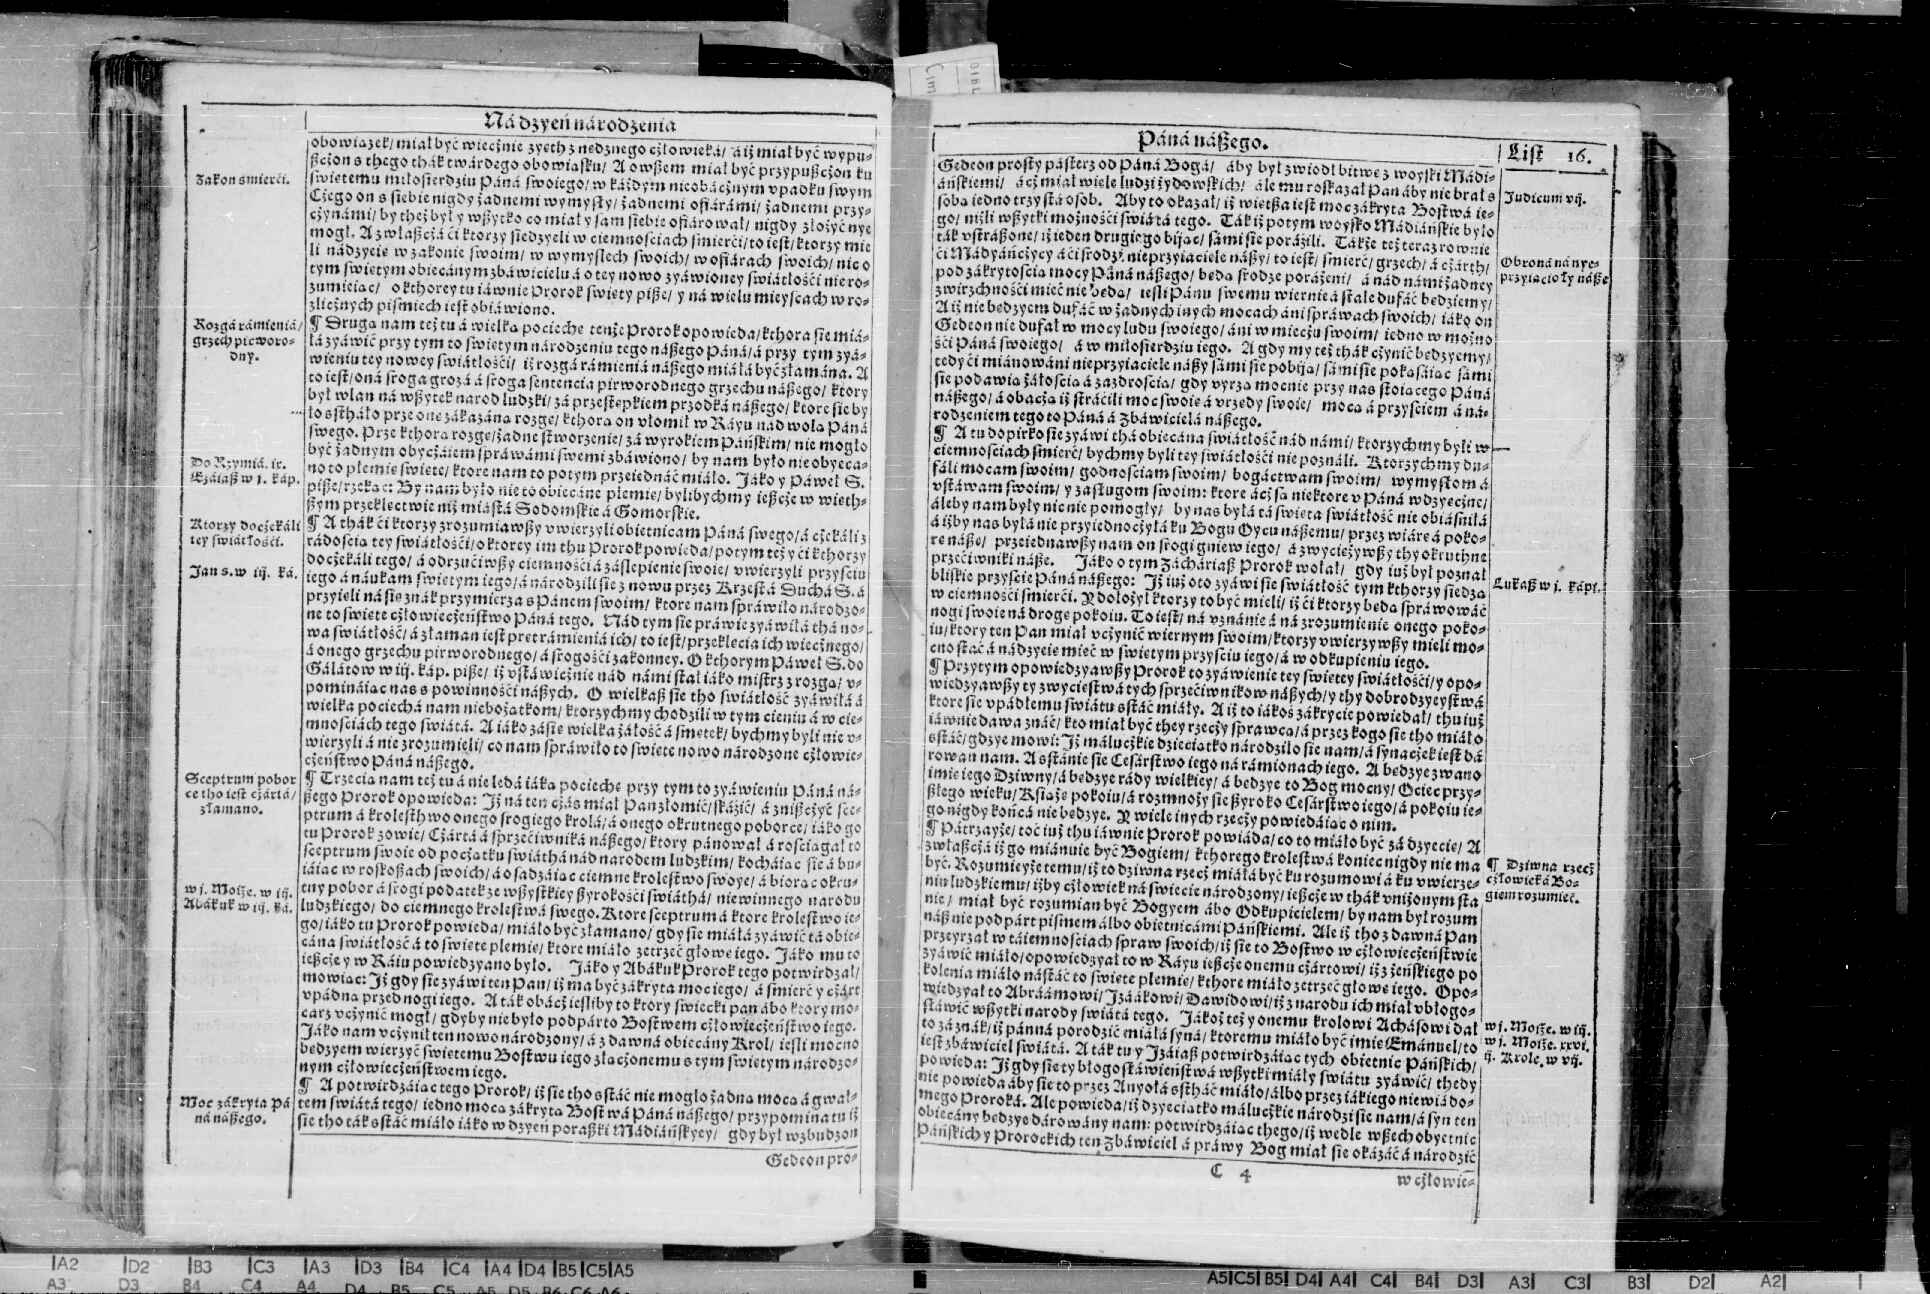 Ná dzyeń národzenia
obowiązek/ miał być wiecżnie zyeth z nędznego cżłowieká/ á iż miał być wypu-
ßcżon s thego thák twárdego obowiąsku/ A owßem miał być przypußcżon ku
świętemu miłosierdziu Páná swoiego/ w káżdym nieobácżnym vpadku swym
Cżego on s siebie nigdy żadnemi wymysły/ żadnemi ofiárámi/ żadnemi przy-
cżynámi/ by też był y wßytko co miał y sam siebie ofiárował/ nigdy złożyć nye
mogł. A zwłaßcżá ći ktorzy siedzyeli w ciemnościach śmierći/ to iest/ ktorzy mie
li nádzyeię w zakonie swoim/ w wymyslech swoich/ w ofiárach swoich/ nic o
tym świętym obiecánym zbáwicielu á o tey nowo zyáwioney świátłośći nie ro-
zumieiąc/ o kthorey tu iáwnie Prorok święty piße/ y ná wielu mieyscach w ro-
zlicżnych pismiech iest obiáwiono.
¶ Druga nam też tu á wielką pociechę tenże Prorok opowiéda/ kthora się miá-
łá zyáwić przy tym to świętym národzeniu tego náßego Páná/ á przy tym zyá-
wieniu tey nowey świátłośći/ iż rozgá rámieniá náßego miáłá być złamána. A
to iest/ oná sroga grozá á sroga sentencia pirworodnego grzechu náßego/ ktory
był wlan ná wßytek narod ludzki/ zá przestępkiem przodká náßego/ ktore się by
ło ssthało prze onę zákazána rozgę/ kthora on vłomił w Ráyu nád wolą Páná
swego. Prze kthorą rozgę/ żadne stworzenie/ zá wyrokiem Páńskim/ nie mogło
być żadnym obycżáiem spráwámi swemi zbáwiono/ by nam było nie obyeca-
no to plemię święte/ ktore nam to potym przeiednáć miáło. Jáko y Páweł S.
piße/ rzekąc: By nam było nie to obiecáne plemię/ bylibychmy ießcże w więth-
ßym przeklęctwie niż miástá Sodomskie á Gomorskie.
¶ A thák ći ktorzy zrozumiawßy vwierzyli obietnicam Páná swego/ á cżekáli z
rádością tey świátłośći/ o ktorey im thu Prorok powiéda/ potym też y ći kthorzy
docżekáli tego/ á odrzućiwßy ciemnośći á záslepienie swoie/ vwierzyli przyściu
iego á náukam świętym iego/ á národzili się z nowu przez Krzest á Duchá S. á
przyięli ná się znák przymierza s Pánem swoim/ ktore nam spráwiło národzo-
ne to święte cżłowiecżeństwo Páná tego. Nád tym się práwie zyáwiłá thá no-
wa świátłość/ á złaman iest pręt rámienia ich/ to iest/ przeklęcia ich wiecżnego/
á onego grzechu pirworodnego/ á srogośći zakonney. O kthorym Páweł S. do
Gálatow w iij. káp. piße/ iż vstáwicżnie nád námi stał iáko mistrz z rozgą/ v-
pomináiąc nas s powinnośći náßych. O wielkaß się tho świátłość zyáwiłá á
wielka pociechá nam nieboźatkom/ ktorzychmy chodzili w tym cieniu á w cie-
mnościách tego świátá. A iáko zásię wielka żáłość á smętek/ bychmy byli nie v-
wierzyli á nie zrozumieli/ co nam spráwiło to święte nowo národzone cżłowie-
cżeństwo Páná náßego.
¶ Trzecia nam też tu á nie ledá iáka pociechę przy tym to zyáwieniu Páná ná-
ßego Prorok opowiéda: Iż ná ten cżás miał Pan złomić/ skáźić/ á znißcżyć sce-
ptrum á krolesthwo onego srogiego krolá/ á onego okrutnego poborcę/ iáko go
tu Prorok zowie/ Cżártá á sprzećiwniká náßego/ ktory pánował á rościągał to
sceptrum swoie od pocżątku świáthá nád narodem ludzkim/ kocháiąc się á bu-
iáiąc w roskoßách swoich/ á osadzáiąc ciemne krolestwo swoye/ á biorąc okru-
tny pobor á srogi podatek ze wßystkiey ßyrokośći świáthá/ niewinnego narodu
ludzkiego/ do ciemnego krolestwá swego. Ktore sceptrum á ktore krolestwo ie-
go/ iáko tu Prorok powiéda/ miáło być złamano/ gdy się miáłá zyáwić tá obie-
cána świátłość á to święte plemię/ ktore miáło zetrzeć głowę iego. Jáko mu to
ießcże y w Ráiu powiedzyano było. Jáko y Abákuk Prorok tego potwirdzał/
mowiąc: Iż gdy się zyáwi ten Pan/ iż ma być zákryta moc iego/ á śmierć y cżárt
vpádną przed nogi iego. A ták obácż iesliby to ktory świecki pan ábo ktory mo-
cárz vcżynić mogł/ gdyby nie było podpárto Bostwem cżłowiecżeństwo iego.
Jáko nam vcżynił ten nowo národzony/ á z dawná obiecány Krol/ iesli mocno
będzyem wierzyć świętemu Bostwu iego złącżonemu s tym świętym národzo-
nym cżłowiecżeństwem iego.
¶ A potwirdzáiąc tego Prorok/ iż się tho sstáć nie mogło żadną mocą á gwał-
tem świátá tego/ iedno mocą zákrytą Bostwá Páná náßego/ przypomina tu iż
się tho ták sstáć miáło iáko w dzyeń poraßki Mádiáńskyey/ gdy był wzbudzon
Gedeon pro-
Zakon śmierći.
Rozgá rámieniá/
grzech pirworo-
dny.
Do Rzymiá. ix.
Ezáiaß w j. káp.
Ktorzy docżekáli
tey świátłośći.
Jan s. w iij. ká.
Sceptrum pobor
ce tho iest cżártá/
złamano.
w j. Moiże. w iij.
Abákuk w iij. ká.
Moc zákryta Pá
ná náßego.
Páná náßego.
List 16.
Gedeon prosty pásterz od Páná Bogá/ áby był zwiodł bitwę z woyski Mádi-
áńskiemi/ ácż miał wiele ludzi żydowskich/ ále mu roskazał Pan áby nie brał s
sobą iedno trzy stá osob. Aby to okazał/ iż więtßa iest moc zákryta Bostwá ie-
go/ niżli wßytki możnośći świátá tego. Ták iż potym woysko Mádiáńskie było
ták vstráßone/ iż ieden drugiego biiąc/ sámi się poráźili. Tákże też teraz rownie
ći Mádyáńcżycy á ći srodzy nieprzyiaciele náßy/ to iest/ śmierć/ grzech/ á cżárth/
pod zákrytością mocy Páná náßego/ będą srodze poráżeni/ á nád námi żadney
zwirzchnośći mieć nie będą/ iesli Pánu swemu wiernie á stále dufáć będziemy/
A iż nie będzyem dufáć w żadnych inych mocach áni spráwach swoich/ iáko on
Gedeon nie dufał w mocy ludu swoiego/ áni w miecżu swoim/ iedno w możno
śći Páná swoiego/ á w miłosierdziu iego. A gdy my też thák cżynić będzyemy/
tedy ći miánowáni nieprzyiaciele náßy sámi się pobiją/ sámi się pokąsáiąc sámi
się podawią żáłością á zazdrością/ gdy vyrzą mocnie przy nas stoiącego Páná
náßego/ á obacżą iż stráćili moc swoię á vrzędy swoie/ mocą á przyściem á ná-
rodzeniem tego to Páná á Zbáwicielá náßego.
¶ A tu dopirko się zyáwi thá obiecána świátłość nád námi/ ktorzychmy byli w
ciemnościach śmierć/ bychmy byli tey świátłośći nie poználi. Ktorzychmy du-
fáli mocam swoim/ godnościam swoim/ bogáctwam swoim/ wymysłom á
vstáwam swoim/ y zasługom swoim: ktore ácż są niektore v Páná wdzyęcżne/
áleby nam były nic nie pomogły/ by nas byłá tá święta świátłość nie obiásniłá
á iżby nas byłá nie przyiednocżyłá ku Bogu Oycu náßemu/ przez wiárę á poko-
rę náße/ przeiednawßy nam on srogi gniew iego/ á zwyciężywßy thy okruthne
przećiwniki náße. Jáko o tym Zacháriaß Prorok wołał/ gdy iuż był poznał
bliskie przyście Páná náßego: Iż iuż oto zyáwi się świátłość tym kthorzy siedzą
w ciemnośći śmierći. Y dołożył ktorzy to być mieli/ iż ći ktorzy będą spráwowáć
nogi swoie ná drogę pokoiu. To iest/ ná vznánie á ná zrozumienie onego poko-
iu/ ktory ten Pan miał vcżynić wiernym swoim/ ktorzy vwierzywßy mieli mo-
cno stać á nádzyeię mieć w świętym przyściu iego/ á w odkupieniu iego.
¶ Przy tym opowiedzyawßy Prorok to zyáwienie tey świętey świátłośći/ y opo-
wiedzyawßy ty zwycięstwá tych sprzećiwnikow náßych/ y thy dobrodzyeystwá
ktore się vpádłemu świátu sstáć miáły. A iż to iákoś zákrycie powiedał/ thu iuż
iáwnie dawa znáć/ kto miał być they rzecży sprawcá/ á przez kogo się tho miáło
sstáć/ gdzye mowi: Iż málucżkie dzieciątko národziło się nam/ á synacżek iest dá
rowan nam. A sstánie się Cesárstwo iego ná rámionach iego. A będzye zwano
imię iego Dziwny/ á będzye rády wielkiey/ á będzye to Bog mocny/ Ociec przy-
ßłego wieku/ Książę pokoiu/ á rozmnoży się ßyroko Cesárstwo iego/ á pokoiu ie-
go nigdy końcá nie będzye. Y wiele inych rzecży powiedáiąc o nim.
¶ Pátrzayże/ toć iuż thu iáwnie Prorok powiáda/ co to miáło być zá dzyecię/ A
zwłaßcżá iż go miánuie być Bogiem/ kthorego krolestwá koniec nigdy nie ma
być. Rozumieyże temu/ iż to dziwna rzecż miáłá być ku rozumowi á ku vwierze-
niu ludzkiemu/ iżby cżłowiek ná świecie národzony/ ießcże w thák vniżonym sta
nie/ miał być rozumian być Bogyem ábo Odkupicielem/ by nam był rozum
náß nie podpárt pismem álbo obietnicámi Páńskiemi. Ale iż tho z dawná Pan
przeyrzał w táiemnościach spraw swoich/ iż się to Bostwo w cżłowiecżeństwie
zyáwić miáło/ opowiedzyał to w Ráyu ießcże onemu cżártowi/ iż z żeńskiego po
kolenia miáło nástáć to święte plemię/ kthore miáło zetrzeć głowę iego. Opo-
wiedzyał to Abráámowi/ Izáákowi/ Dawidowi/ iż z narodu ich miał vbłogo-
słáwić wßytki narody świátá tego. Jákoż też y onemu krolowi Achásowi dał
to zá znák/ iż pánná porodzić miáłá syná/ ktoremu miáło być imię Emánuel/ to
iest zbáwiciel świátá. A ták tu y Izáiaß potwirdzáiąc tych obietnic Páńskich/
powiéda: Iż gdy się ty błogosłáwieństwá wßytki miáły świátu zyáwić/ thedy
nie powiéda áby się to przez Anyołá sstháć miáło/ álbo przez iákiego niewiádo-
mego Proroká. Ale powiéda/ iż dzyeciątko málucżkie národzi się nam/ á syn ten
obiecány będzye dárowány nam: potwirdzáiąc thego/ iż wedle wßech obyetnic
Páńskich y Prorockich ten Zbáwiciel á práwy Bog miał się okázáć á národzić
C 4
w cżłowie-
Judicum vij.
Obroná ná nye-
przyiacioły náße
Lukaß w j. kápi.
¶ Dziwna rzecż
cżłowieká Bo-
giem rozumieć.
w j. Moiże. w iij.
w j. Moiże. xxvi.
ij. Krole. w vij.
A2 D2 B3 C3 A3 D3 B4 C4 A4 D4 B5 C5 A5
A3 D3 B4 C4 A4 D4 B5 C5 A5 D5 B6 C6 A6
A5 C5 B5 D4 A4 C4 B4 D3 A3 C3 B3 D2 A2